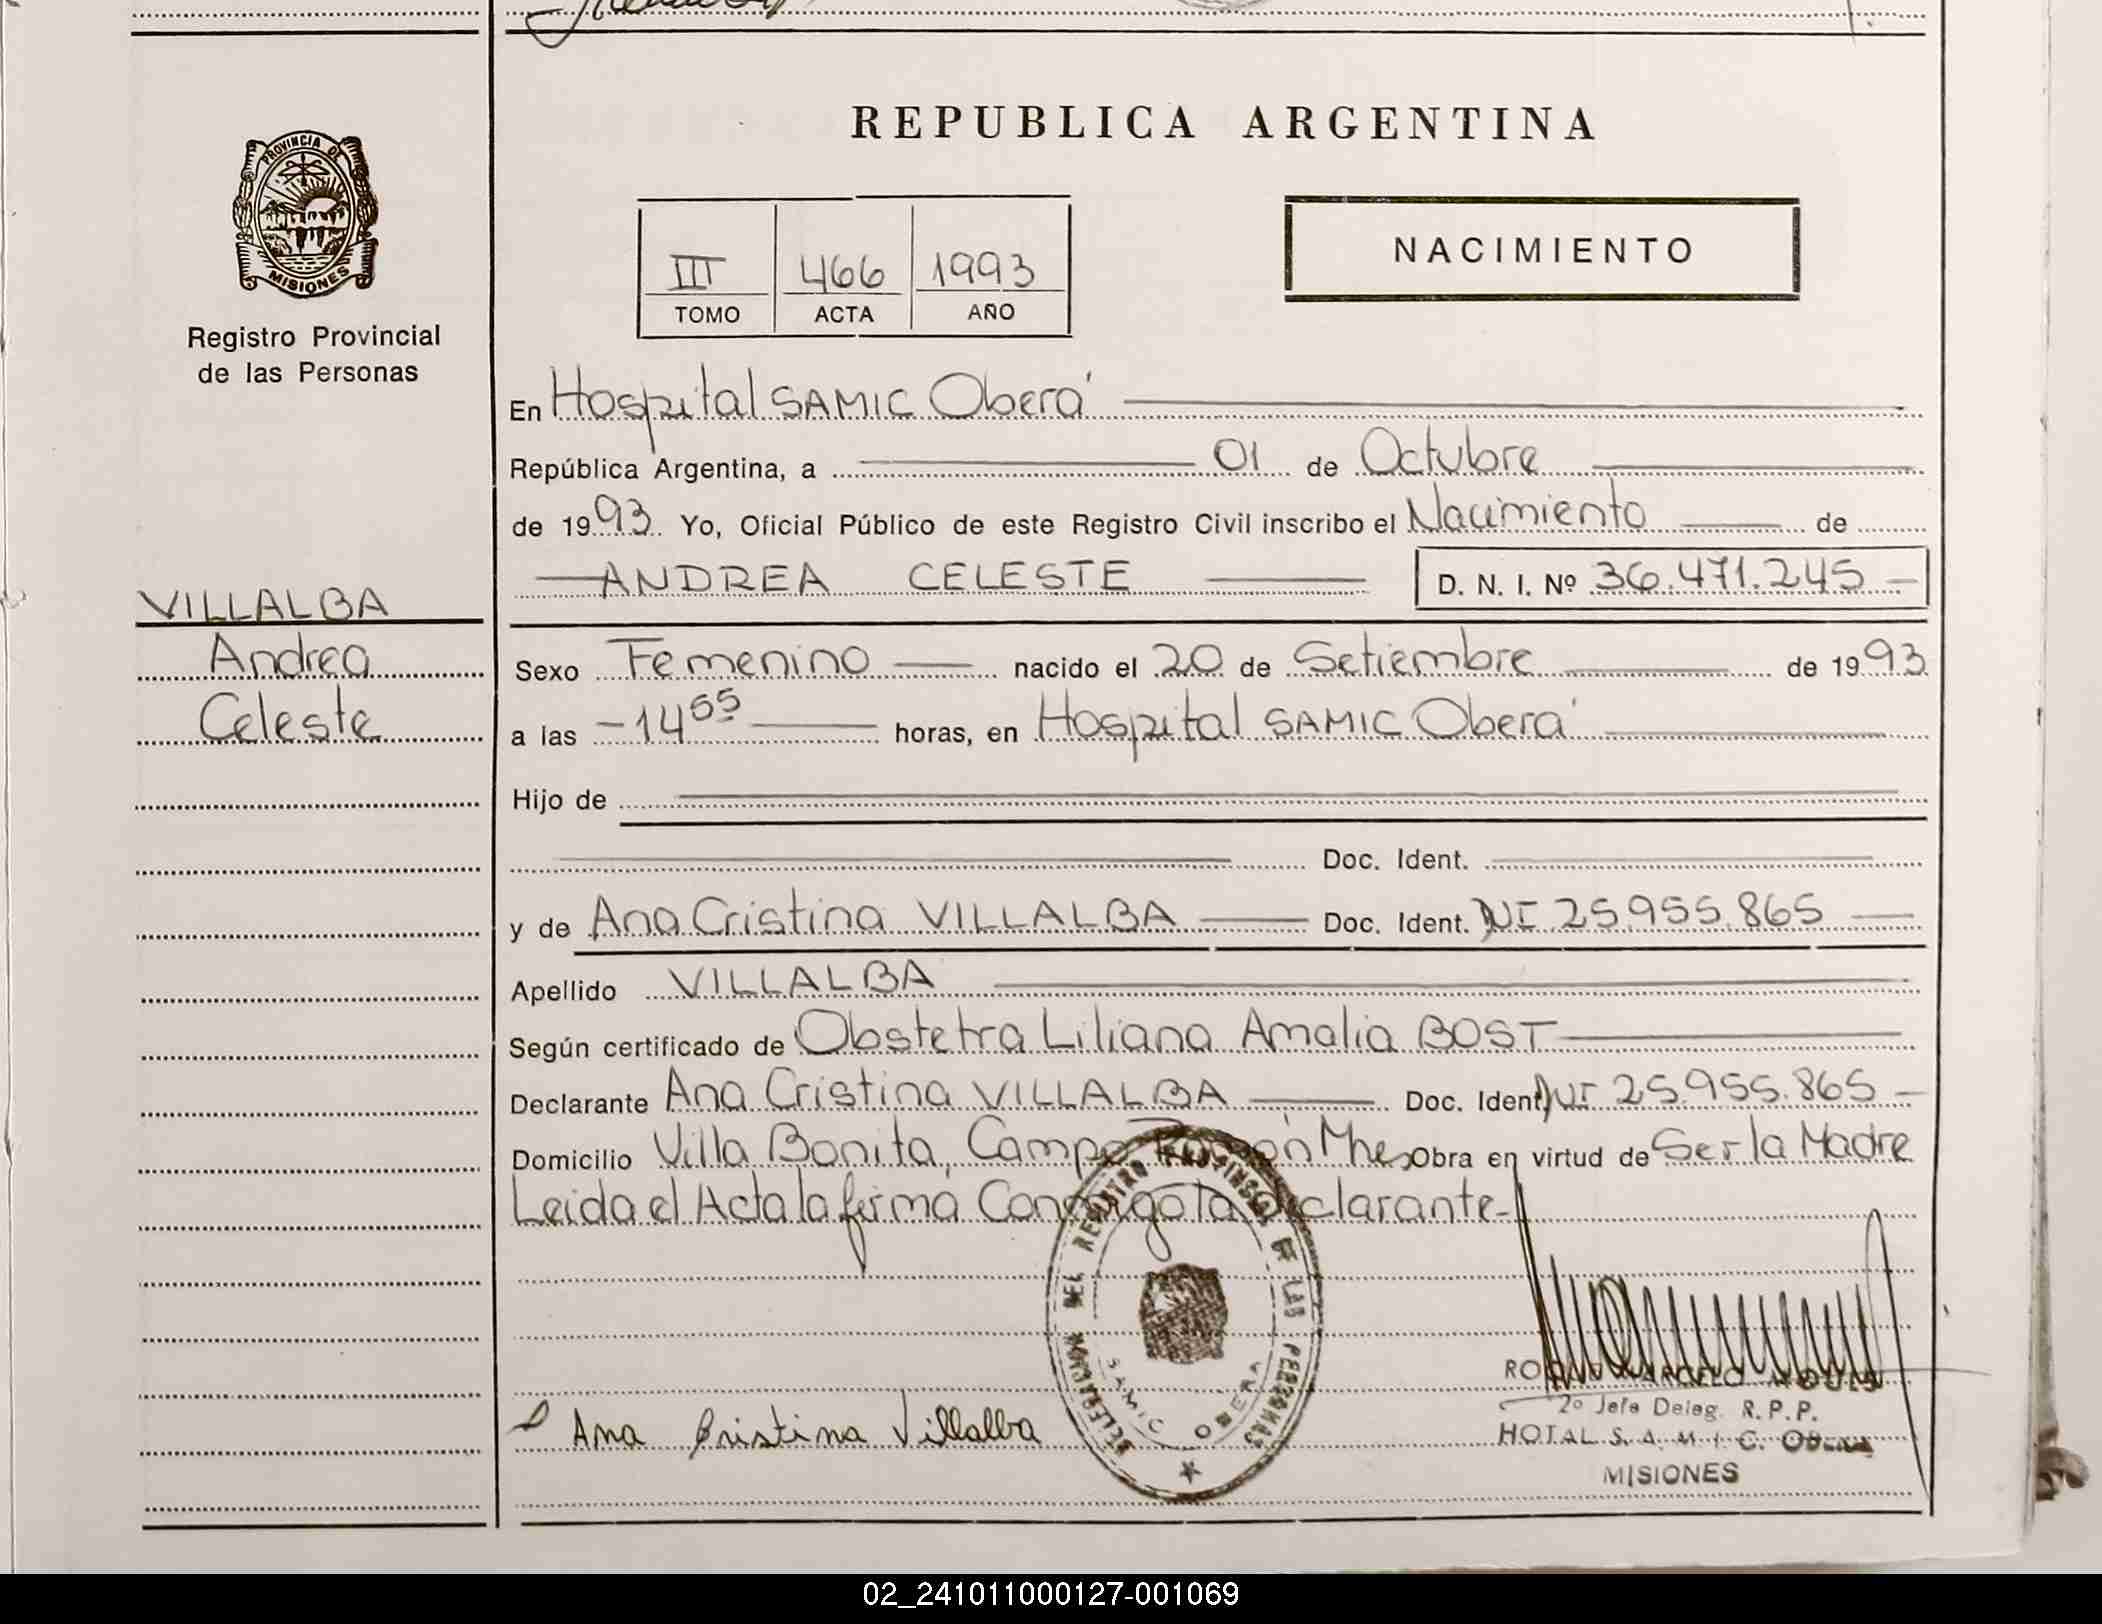 REPUBLICA ARGENTINA
PROVINCIA DE
MISIONES
Registro Provincial
de las Personas
III 466 1993
TOMO ACTA AÑO
NACIMIENTO
En Hospital SAMIC Oberá
República Argentina, a 01 de Octubre
de 1993 Yo, Oficial Público de este Registro Civil inscribo el Nacimiento de
ANDREA CELESTE D. N. I. Nº 36.471.245
VILLALBA
Andrea
Celeste
Sexo Femenino nacido el 20 de Setiembre de 1993
a las 14 55 horas, en Hospital SAMIC Oberá
Hijo de
Doc. Ident.
y de Ana Cristina VILLALBA Doc. Ident. 25.955.865
Apellido VILLALBA
Según certificado de Obstetra Liliana Amalia BOST
Declarante Ana Cristina VILLALBA Doc. Ident. 25.955.865
Domicilio Villa Bonita, Campo Ramón Mnes Obra en virtud de Ser la Madre
Leida el Acta la firma Conmigo la declarante-
DELEGACION DEL REGISTRO PROVINCIAL DE LAS PERSONAS
SAMIC OBERA
Ana Cristina Villalba
MARCELO
2º Jefe Deleg. R.P.P.
HOTAL S. A. M. I. C. OBERA
MISIONES
02_241011000127-001069